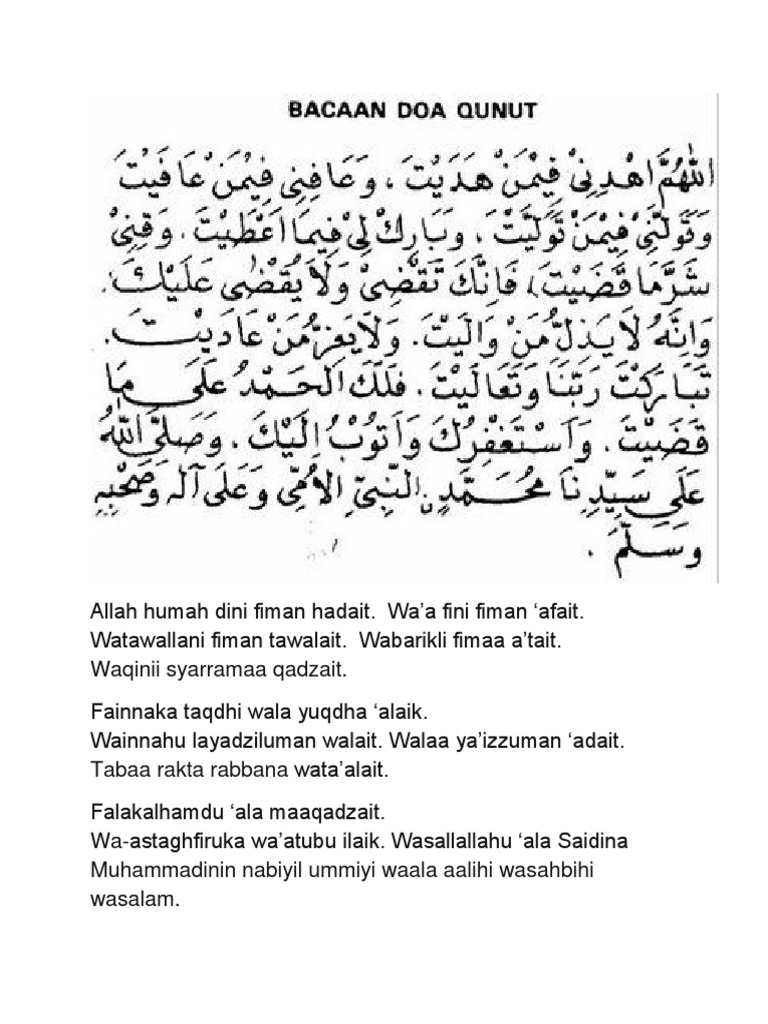 BACAAN DOA QUNUT
اَللّٰهُمَّ اهْدِنِيْ فِيْمَنْ هَدَيْتَ ، وَعَافِنِى فِيْمَنْ عَافَيْتَ
وَتَوَلَّنِيْ فِيْمَنْ تَوَلَّيْتَ ، وَبَارِكْ لِيْ فِيْمَا اَعْطَيْتَ . وَقِنِيْ
شَرَّمَا قَضَيْتَ ، فَاِنَّكَ تَقْضِيْ وَلَا يُقْضٰى عَلَيْكَ .
وَاِنَّهُ لَا يَذِلُّ مَنْ وَالَيْتَ . وَلَا يَعِزُّ مَنْ عَادَيْتَ .
تَبَارَكْتَ رَبَّنَا وَتَعَالَيْتَ . فَلَكَ الْحَمْدُ عَلَى مَا
قَضَيْتَ . وَاَسْتَغْفِرُكَ وَاَتُوْبُ اِلَيْكَ . وَصَلَّى اللّٰهُ
عَلَى سَيِّدِنَا مُحَمَّدٍ النَّبِيِّ الْاُمِّيِّ وَعَلَى آلِهِ وَصَحْبِهِ
وَسَلَّمَ .
Allah humah dini fiman hadait.  Wa’a fini fiman ‘afait.
Watawallani fiman tawalait.  Wabarikli fimaa a’tait.
Waqinii syarramaa qadzait.
Fainnaka taqdhi wala yuqdha ‘alaik.
Wainnahu layadziluman walait. Walaa ya’izzuman ‘adait.
Tabaa rakta rabbana wata’alait.
Falakalhamdu ‘ala maaqadzait.
Wa-astaghfiruka wa’atubu ilaik. Wasallallahu ‘ala Saidina
Muhammadinin nabiyil ummiyi waala aalihi wasahbihi
wasalam.